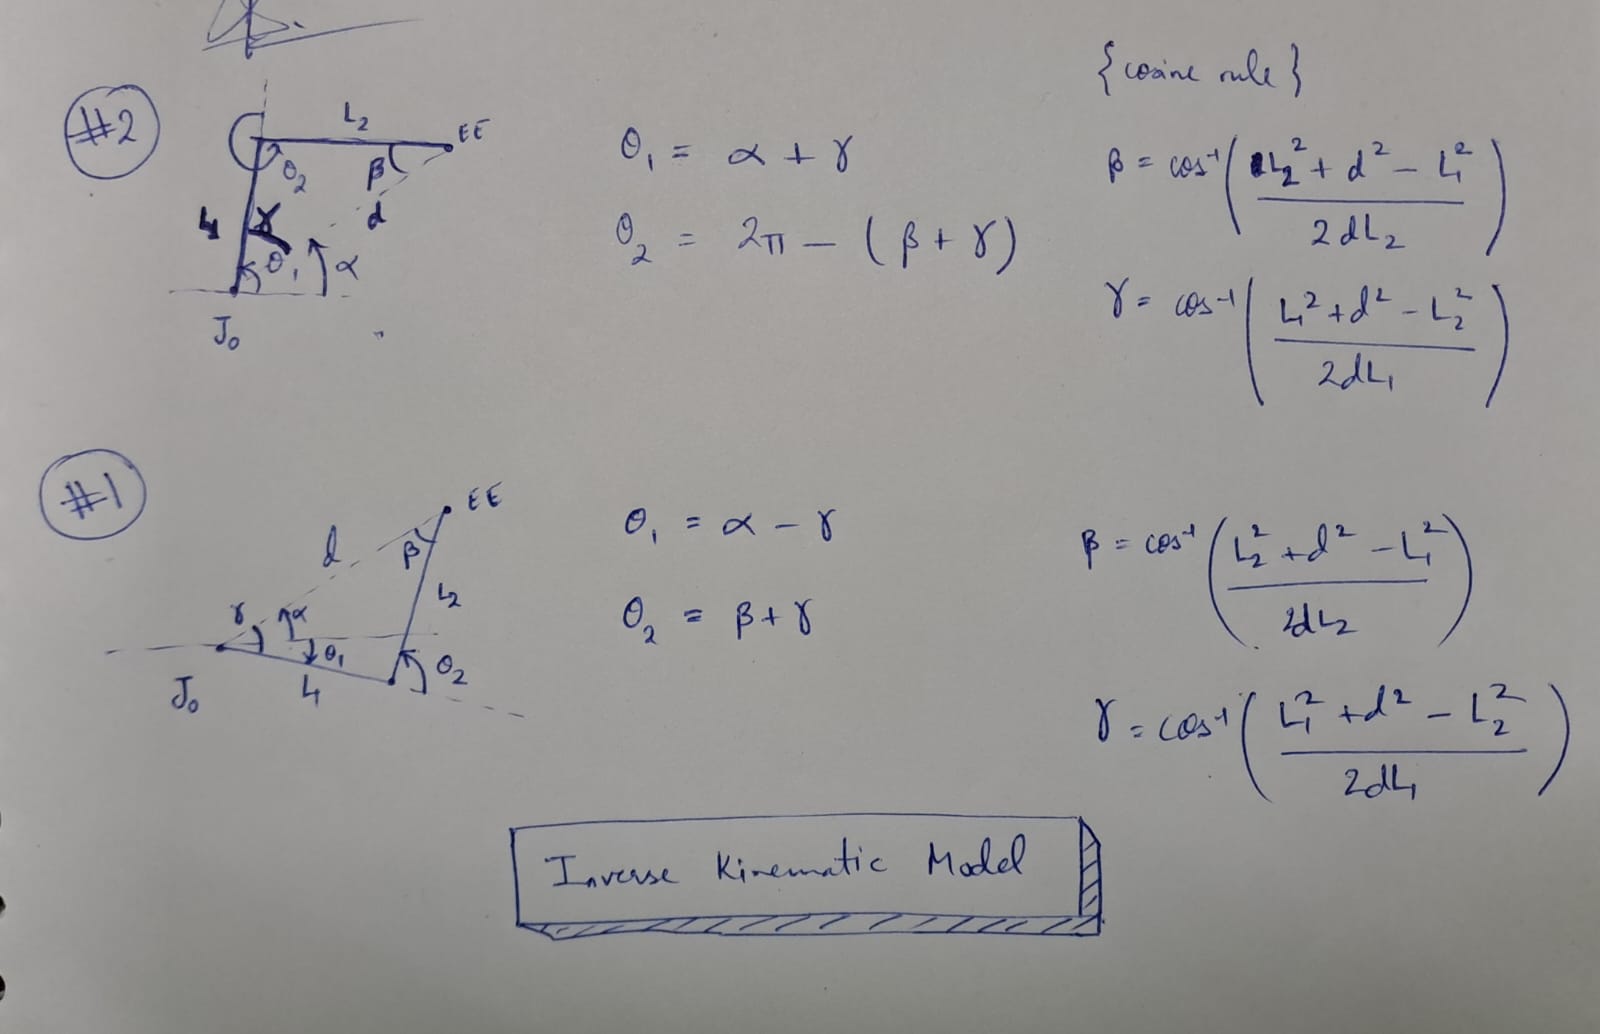 {cosine rule}
#2
L₂
EE
β
θ₂
L₁
γ
d
θ₁
α
J₀
θ₁ = α + γ
θ₂ = 2π - (β + γ)
β = cos⁻¹( (L₂² + d² - L₁²) / 2dL₂ )
γ = cos⁻¹( (L₁² + d² - L₂²) / 2dL₁ )
#1
EE
d
β
L₂
γ
α
θ₁
θ₂
L₁
J₀
θ₁ = α - γ
θ₂ = β + γ
β = cos⁻¹( (L₂² + d² - L₁²) / 2dL₂ )
γ = cos⁻¹( (L₁² + d² - L₂²) / 2dL₁ )
Inverse Kinematic Model